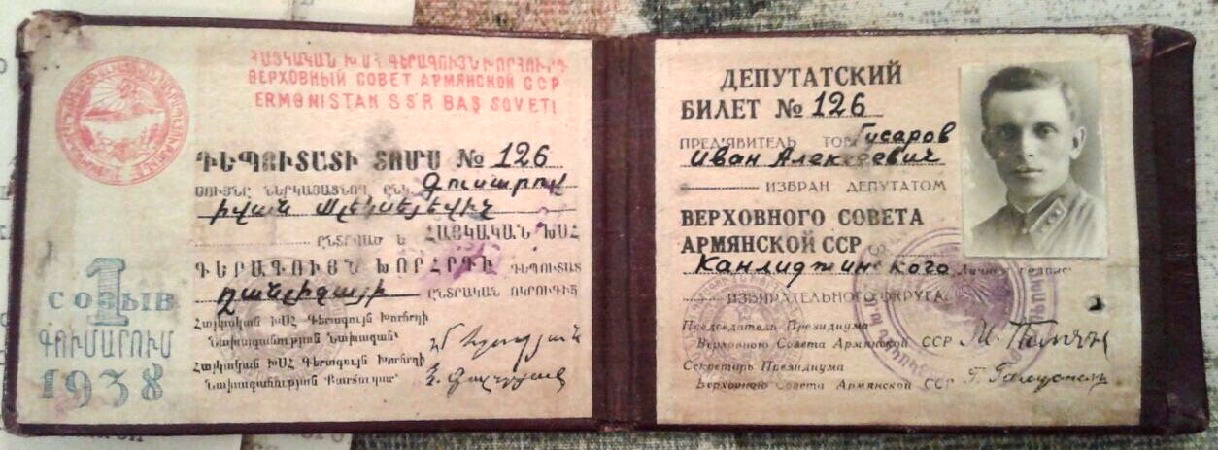 ՀԱՅԿԱԿԱՆ ԽՍՀ ԳԵՐԱԳՈՒՅՆ ԽՈՐՀՈՒՐԴ
ВЕРХОВНЫЙ СОВЕТ АРМЯНСКОЙ ССР
ERMƏNISTAN SSR BAŞ SOVETI
ԴԵՊՈՒՏԱՏԻ ՏՈՄՍ № 126
ՍՈՒՅՆԸ ՆԵՐԿԱՅԱՑՆՈՂ ԸՆԿ. Գուսարով
Իվան Ալեկսեյեվիչ
ԸՆՏՐՎԱԾ Է ՀԱՅԿԱԿԱՆ ԽՍՀ
ԳԵՐԱԳՈՒՅՆ ԽՈՐՀՐԴԻ ԴԵՊՈՒՏԱՏ
Ղանլիջայի ԸՆՏՐԱԿԱՆ ՕԿՐՈՒԳԻՑ
Հայկական ԽՍՀ Գերագույն Խորհրդի
Նախագահության Նախագահ՝
Հայկական ԽՍՀ Գերագույն Խորհրդի
Նախագահության Քարտուղար՝
1
СОЗЫВ
ԳՈՒՄԱՐՈՒՄ
1938
ДЕПУТАТСКИЙ
БИЛЕТ № 126
ПРЕД'ЯВИТЕЛЬ ТОВ. Гусаров
Иван Алексеевич
ИЗБРАН ДЕПУТАТОМ
ВЕРХОВНОГО СОВЕТА
АРМЯНСКОЙ ССР
Канлиджинского Личная подпис
ИЗБИРАТЕЛЬНОГО ОКРУГА.
Председатель Президиума
Верховного Совета Армянской ССР
Секретарь Президиума
Верховного Совета Армянской ССР